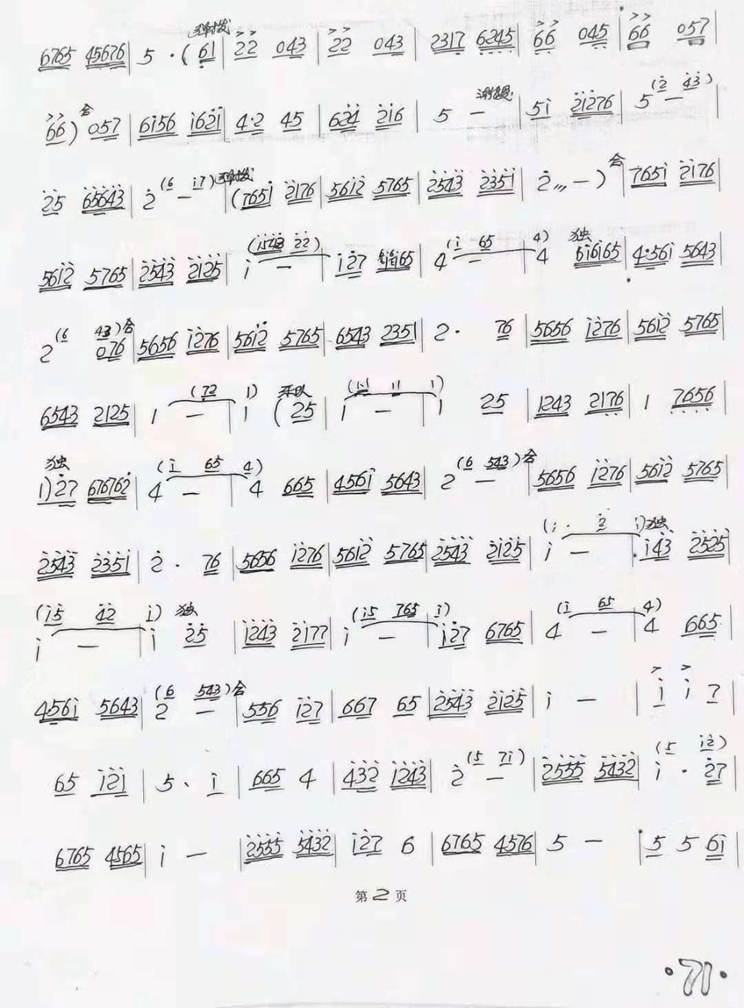 6765 45676 | 5 · ( 61 | 22 043 | 22 043 | 2317 6245 | 66 045 | 66 057 |
66 ) 合 057 | 6i56 i62i | 4·2 45 | 624 216 | 5 — | 5i 21276 | 5 (2 43) — |
25 65643 | 2 (6 i7) — | (765i 2176 | 56i2 5765 | 2543 235i | 2 — ) 合 | 765i 2176 |
56i2 5765 | 2543 2125 | i (i543 22) — | i27 65 | 4 (i 65 — | 4) 4 独 6i6i65 | 4·56i 5643 |
2 (6 43) 合 076 | 5656 i276 | 56i2 5765 | 6543 2351 | 2 · 76 | 5656 i276 | 56i2 5765 |
6543 2125 | 1 (72 — | 1) 1 ( 25 | 1 — | 1 25 | 1243 2176 | 1 7656 |
独 1) 27 676762 | 4 (i 65 — | 4) 4 665 | 456i 5643 | 2 (6 543) 合 — | 5656 i276 | 56i2 5765 |
2543 235i | 2 · 76 | 5656 i276 | 56i2 5765 | 2543 2125 | i (i · 2 — | i) 独 i43 2525 |
i (i5 42 — | i) i 独 25 | i243 2177 | i (i5 765 — | i) i27 6765 | 4 (i 65 — | 4) 4 665 |
456i 5643 | 2 (6 543) 合 — | 556 i27 | 667 65 | 2543 2125 | i — | i i 7 |
65 i2i | 5 · i | 665 4 | 432 i243 | 2 (5 7i) — | 2555 5432 | i (5 i2) · 27 |
6765 4565 | i — | 2555 5432 | i27 6 | 6765 4576 | 5 — | 5 5 6i |
第 2 页
·71·